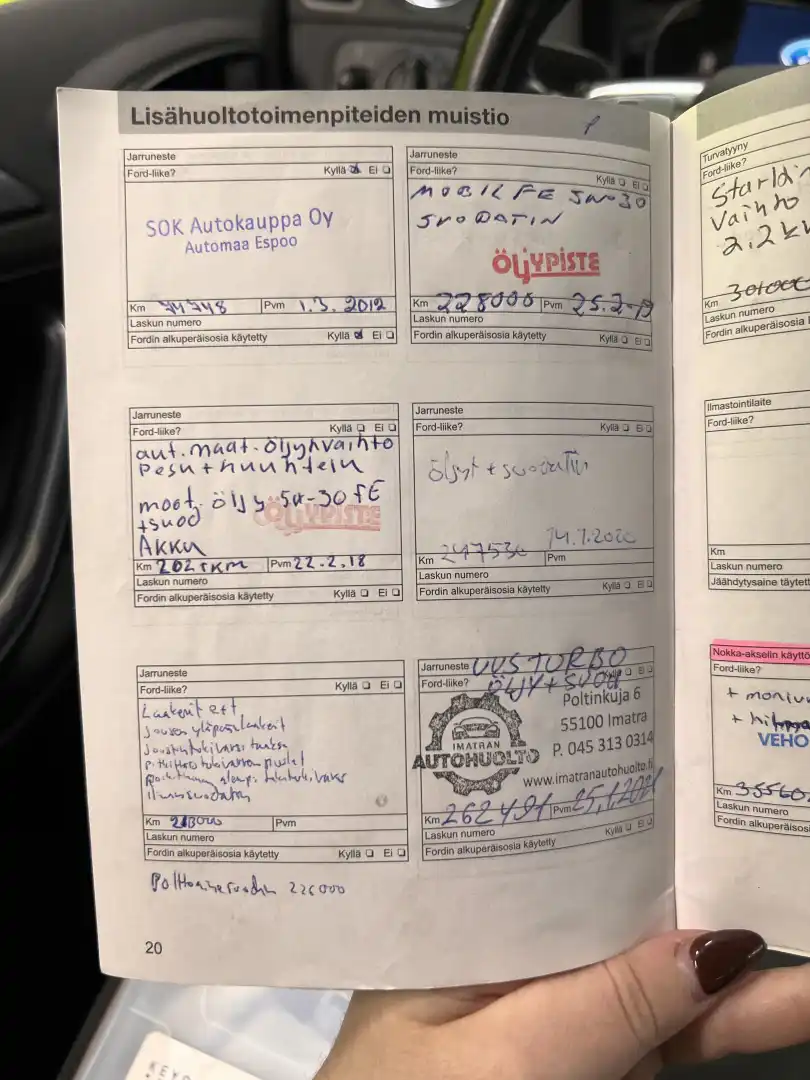 Lisähuoltotoimenpiteiden muistio
Jarruneste
Ford-liike? Kyllä Ei
SOK Autokauppa Oy
Automaa Espoo
Km 74748 Pvm 1.3. 2012
Laskun numero
Fordin alkuperäisosia käytetty Kyllä Ei
Jarruneste
Ford-liike? Kyllä Ei
MOBIL FE 5W-30
SUODATIN
ÖLJYPISTE
Km 228000 Pvm 25.2-19
Laskun numero
Fordin alkuperäisosia käytetty Kyllä Ei
Jarruneste
Ford-liike? Kyllä Ei
aut. maat. öljynvaihto
Pesu + huuhtelu
moot. öljy 5w-30 FE
+suod
ÖLJYPISTE
AKKU
Km 202 TKM Pvm 22.2.18
Laskun numero
Fordin alkuperäisosia käytetty Kyllä Ei
Jarruneste
Ford-liike? Kyllä Ei
öljyt + suodatin
14.7.2020
Km 247530 Pvm
Laskun numero
Fordin alkuperäisosia käytetty Kyllä Ei
Jarruneste
Ford-liike? Kyllä Ei
Laakerit eet
Km Pvm
Laskun numero
Fordin alkuperäisosia käytetty Kyllä Ei
Polttoainesuodatin 226000
Jarruneste UUS TURBO
Ford-liike? ÖLJY + SUOD Kyllä Ei
Poltinkuja 6
55100 Imatra
P. 045 313 0314
IMATRAN
AUTOHUOLTO
www.imatranautohuolto.fi
Km 262491 Pvm 25.1.2021
Laskun numero Kyllä Ei
Fordin alkuperäisosia käytetty
20
Turvatyyny
Ford-liike?
Startin
Vaihto
2,2 kw
Km 301000
Laskun numero
Fordin alkuperäisosia
Ilmastointilaite
Ford-liike?
Km
Laskun numero
Jäähdytysaine täytet
Nokka-akselin käyttö
Ford-liike?
VEHO
Km
Laskun numero
Fordin alkuperäisos